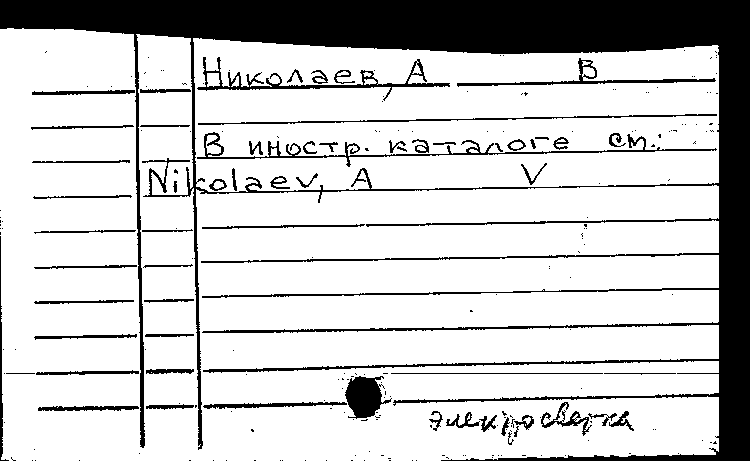 Николаев, А В
В иностр. каталоге см.:
Nikolaev, A V
электросверка